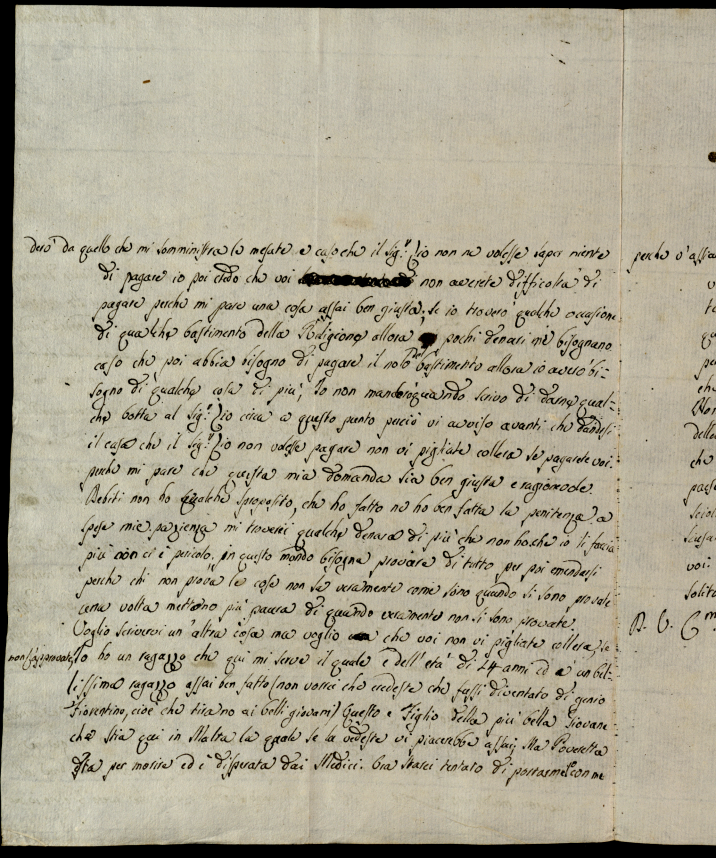 derò da quello che mi somministra le mesate e caso che il Sig.r Zio non ne volesse saper niente
di pagare io poi credo che voi non averete difficoltà di
pagare perche mi pare una cosa assai ben giusta, se io troverò qualche occasione
di qualche bastimento della Religione allora pochi denari mi bisognano
caso che poi abbia bisogno di pagare il nolo del bastimento allora io averò bi-
sogno di qualche cosa di più, Io non mancherò quando scrivo di darne qual-
che botta al Sig.r Zio circa a questo punto perciò vi avviso avanti che dandosi
il caso che il Sig.r Zio non volesse pagare non vi pigliate collera se pagarete voi
perche mi pare che questa mia domanda sia ben giusta e raggionevole.
Debiti non ho qualche sproposito, che ho fatto ne ho ben fatta la penitenza a
spese mie, pazienza mi troverei qualche denaro di più che non ho, che io li faccia
più non ci è pericolo, in questo mondo bisogna provare di tutto per poi emendarsi
perche chi non prova le cose non sa veramente come sono quando si sono provate
una volta mettono più paura di quando veramente non si sono provate.
Voglio scrivervi un'altra cosa ma voglio che voi non vi pigliate collera, se
non l'approvate, Io ho un ragazzo che qui mi serve il quale è dell'età di 14 anni ed è un bel-
lissimo ragazzo assai ben fatto (non vorrei che credeste che fussi diventato di genio
Fiorentino, cioè che tirano ai belli giovani) Questo è Figlio della più bella Giovane
che stia qui in Malta la quale se la vedeste vi piacerebbe assai, Ma Poveretta
sta per morire ed è disperata dai Medici. Ora starei tentato di portarmelo con me
perche v'assi
che
che
voi:
solito